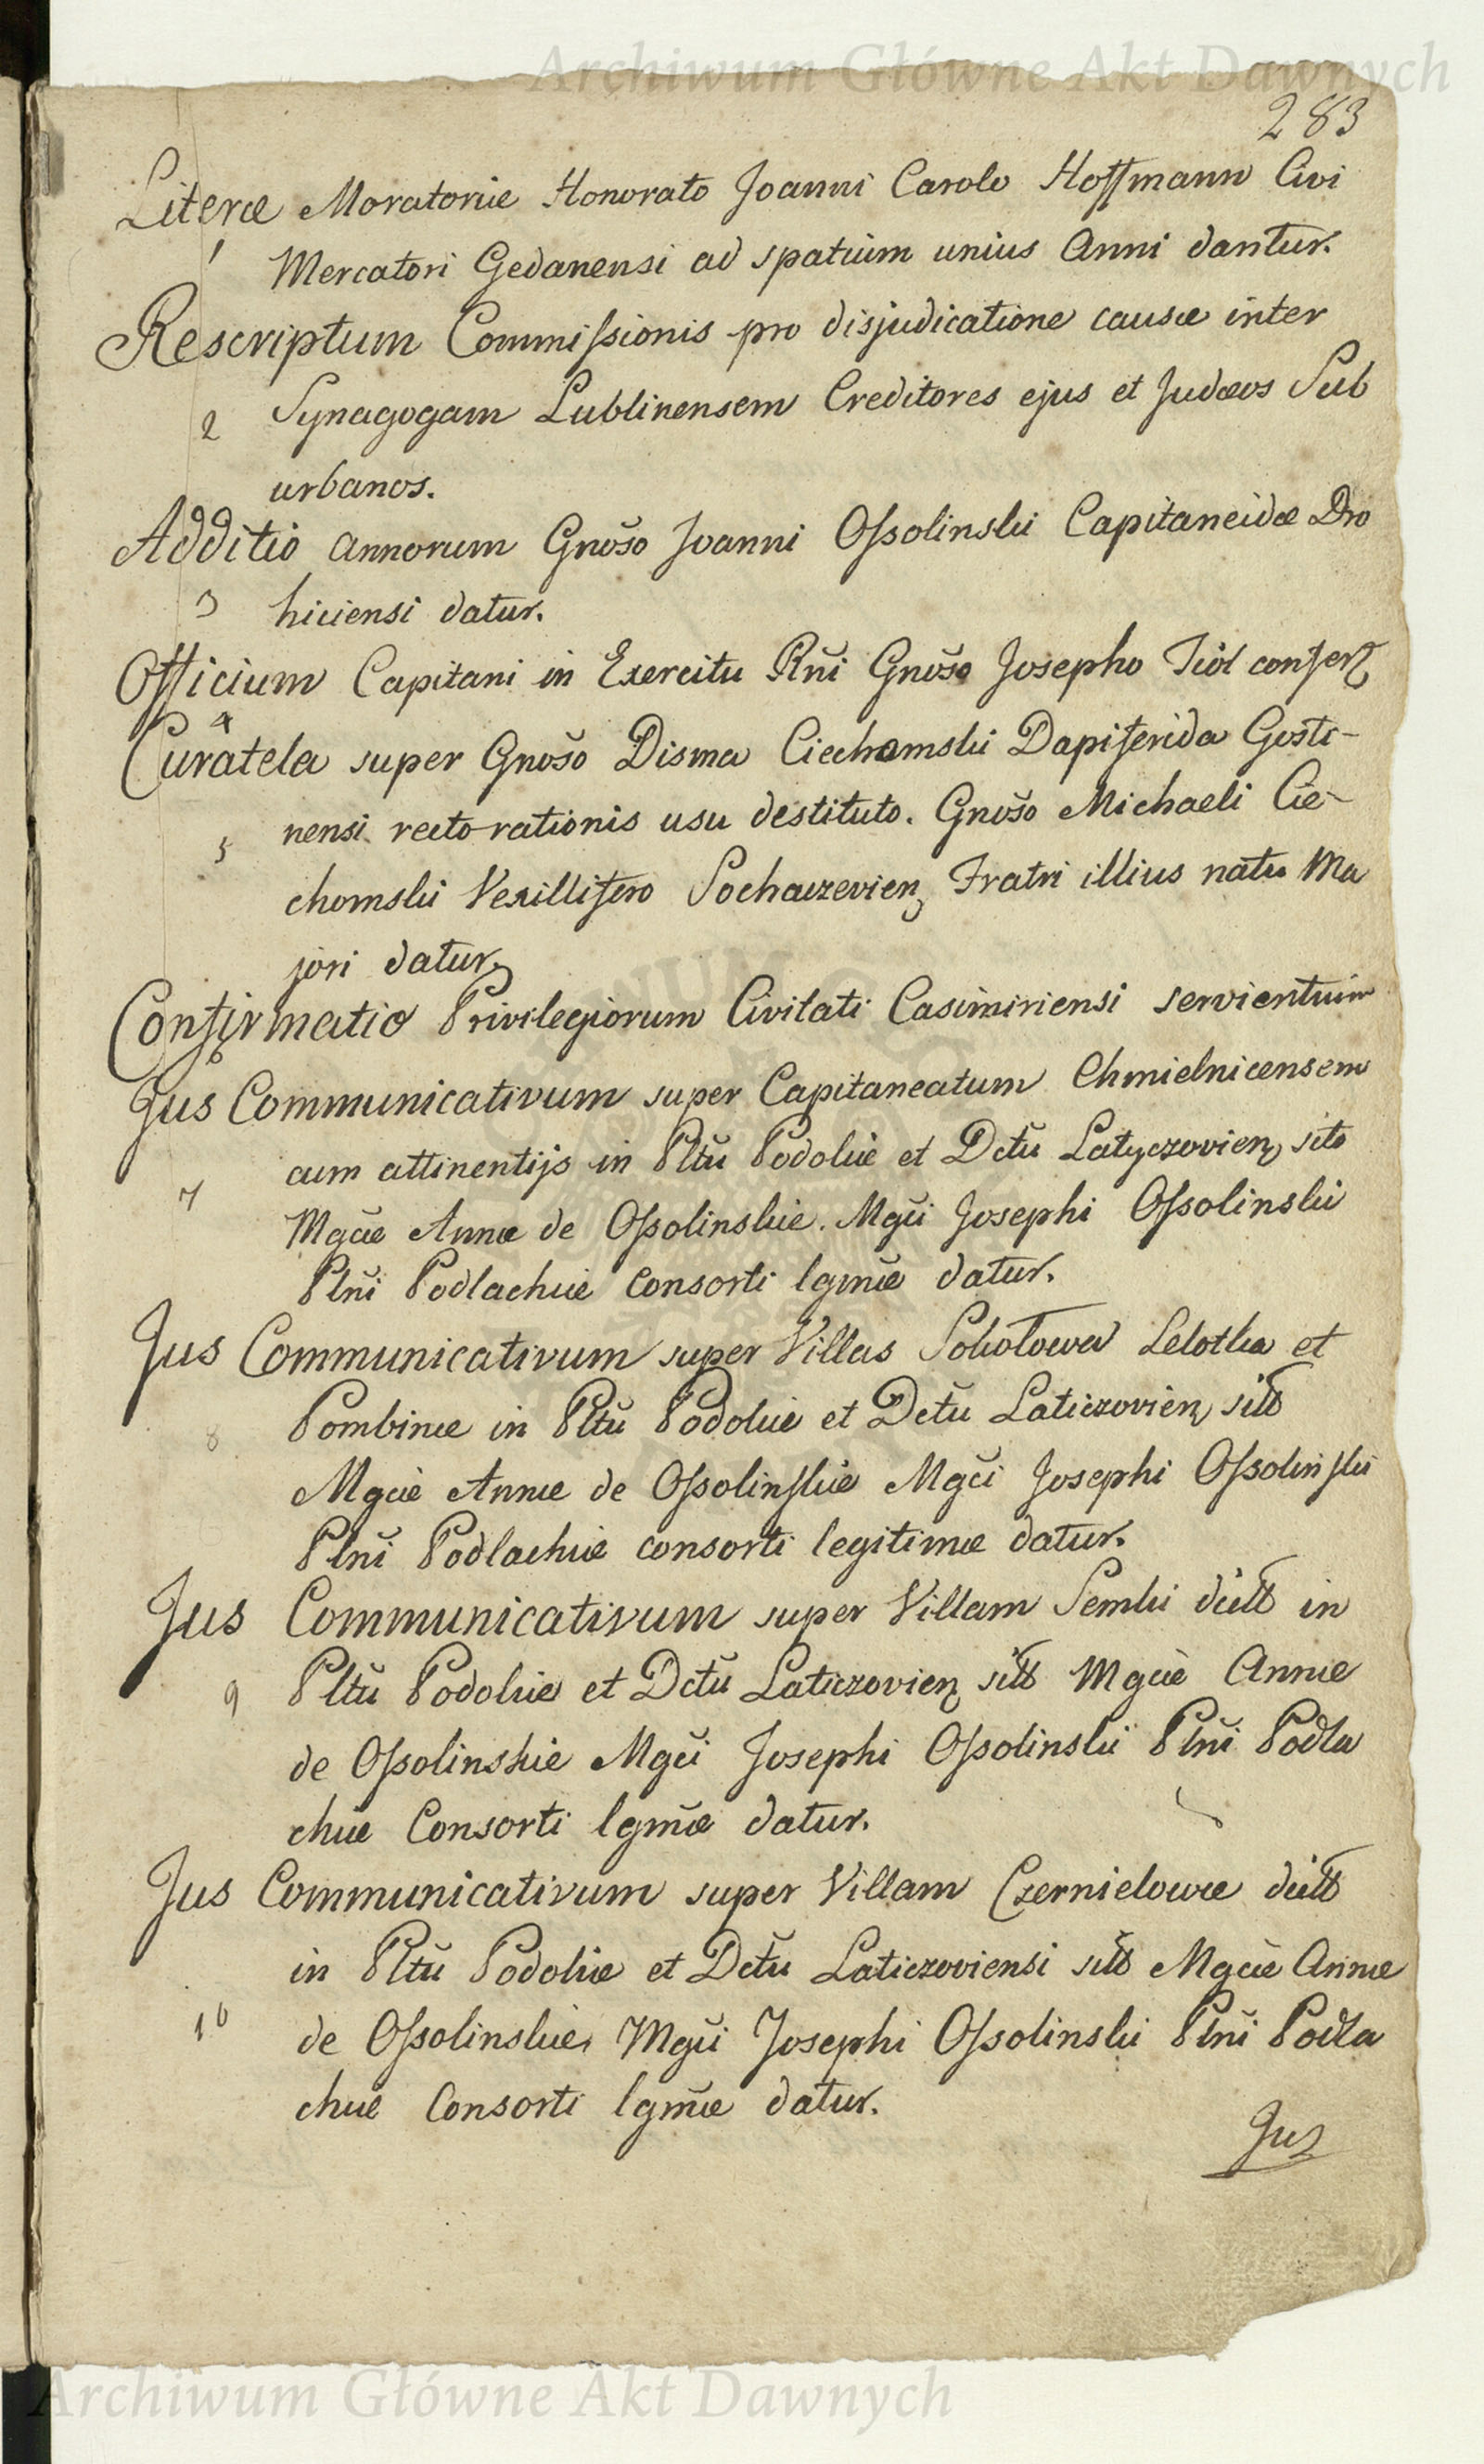 Archiwum Główne Akt Dawnych
283
Literæ Moratoriæ Honorato Joanni Carolo Hoffmann Civi
1 Mercatori Gedanensi ad spatium unius Anni dantur.
Rescriptum Commissionis pro disjudicatione causæ inter
2 Synagogam Lublinensem Creditores ejus et Judæos Sub
urbanos.
Additio annorum Gnošo Joanni Ossolinski Capitaneidæ Dro
3 hiciensi datur.
Officium Capitani in Exercitu Rñi Gnošo Josepho confert
4
Curatela super Gnošo Disma Ciechomski Dapiferida Gosti-
5 nensi recto rationis usu destituto. Gnošo Michaeli Cie-
chomski Vexillifero Sochaczevien Fratri illius natu Ma
jori datur.
Confirmatio Privilegiorum Civitati Casimiriensi servientium
6
Jus Communicativum super Capitaneatum Chmielnicensem
cum attinentijs in Pltũ Podoliæ et Dctũ Latyczovien sito
7 Mgcæ Annæ de Ossolinskie. Mgci Josephi Ossolinski
Plñi Podlachiæ Consorti lgmæ datur.
Jus Communicativum super Villas Sokołowa Lelotka et
8 Pombinæ in Pltũ Podoliæ et Dctũ Laticzovien sitt
Mgcæ Annæ de Ossolinskie Mgci Josephi Ossolinski
Plñi Podlachiæ consorti legitimæ datur.
Jus Communicativum super Villam Semki dictt in
9 Pltũ Podoliæ et Dctũ Laticzovien sitt Mgcæ Annæ
de Ossolinskie Mgci Josephi Ossolinski Plñi Podla
chiæ Consorti lgmæ datur.
Jus Communicativum super Villam Czernielowce dictt
in Pltũ Podoliæ et Dctũ Laticzoviensi sitt Mgcæ Annæ
10 de Ossolinskie Mgci Josephi Ossolinski Plñi Podla
chiæ Consorti lgmæ datur.
Jus
Archiwum Główne Akt Dawnych